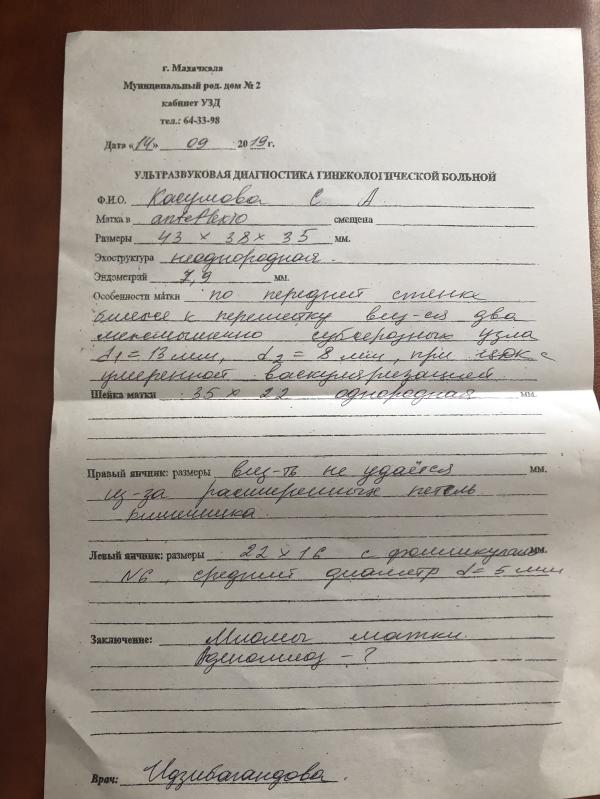 г. Махачкала
Муниципальный род. дом № 2
кабинет УЗД
тел.: 64-33-98
Дата «14» 09 2019 г.
УЛЬТРАЗВУКОВАЯ ДИАГНОСТИКА ГИНЕКОЛОГИЧЕСКОЙ БОЛЬНОЙ
Ф.И.О. Касумова С А
Матка в anteflexio смещена
Размеры 43 × 38 × 35 мм.
Эхоструктура неоднородная.
Эндометрий 7,9 мм.
Особенности матки по передней стенке
ближе к перешейку виз-ся два
субсерозных узла
d1 = 13 мм, d2 = 8 мм, при ЦДК с
умеренной васкуляризацией
Шейка матки 35 × 22 однородная мм.
Правый яичник: размеры виз-ть не удаётся мм.
из-за расширенных петель
кишечника.
Левый яичник: размеры 22 × 16 с фолликулами мм.
N6, средний диаметр d = 5 мм
Заключение: Миомы матки.
Аденомиоз - ?
Врач: Идзибагандова.